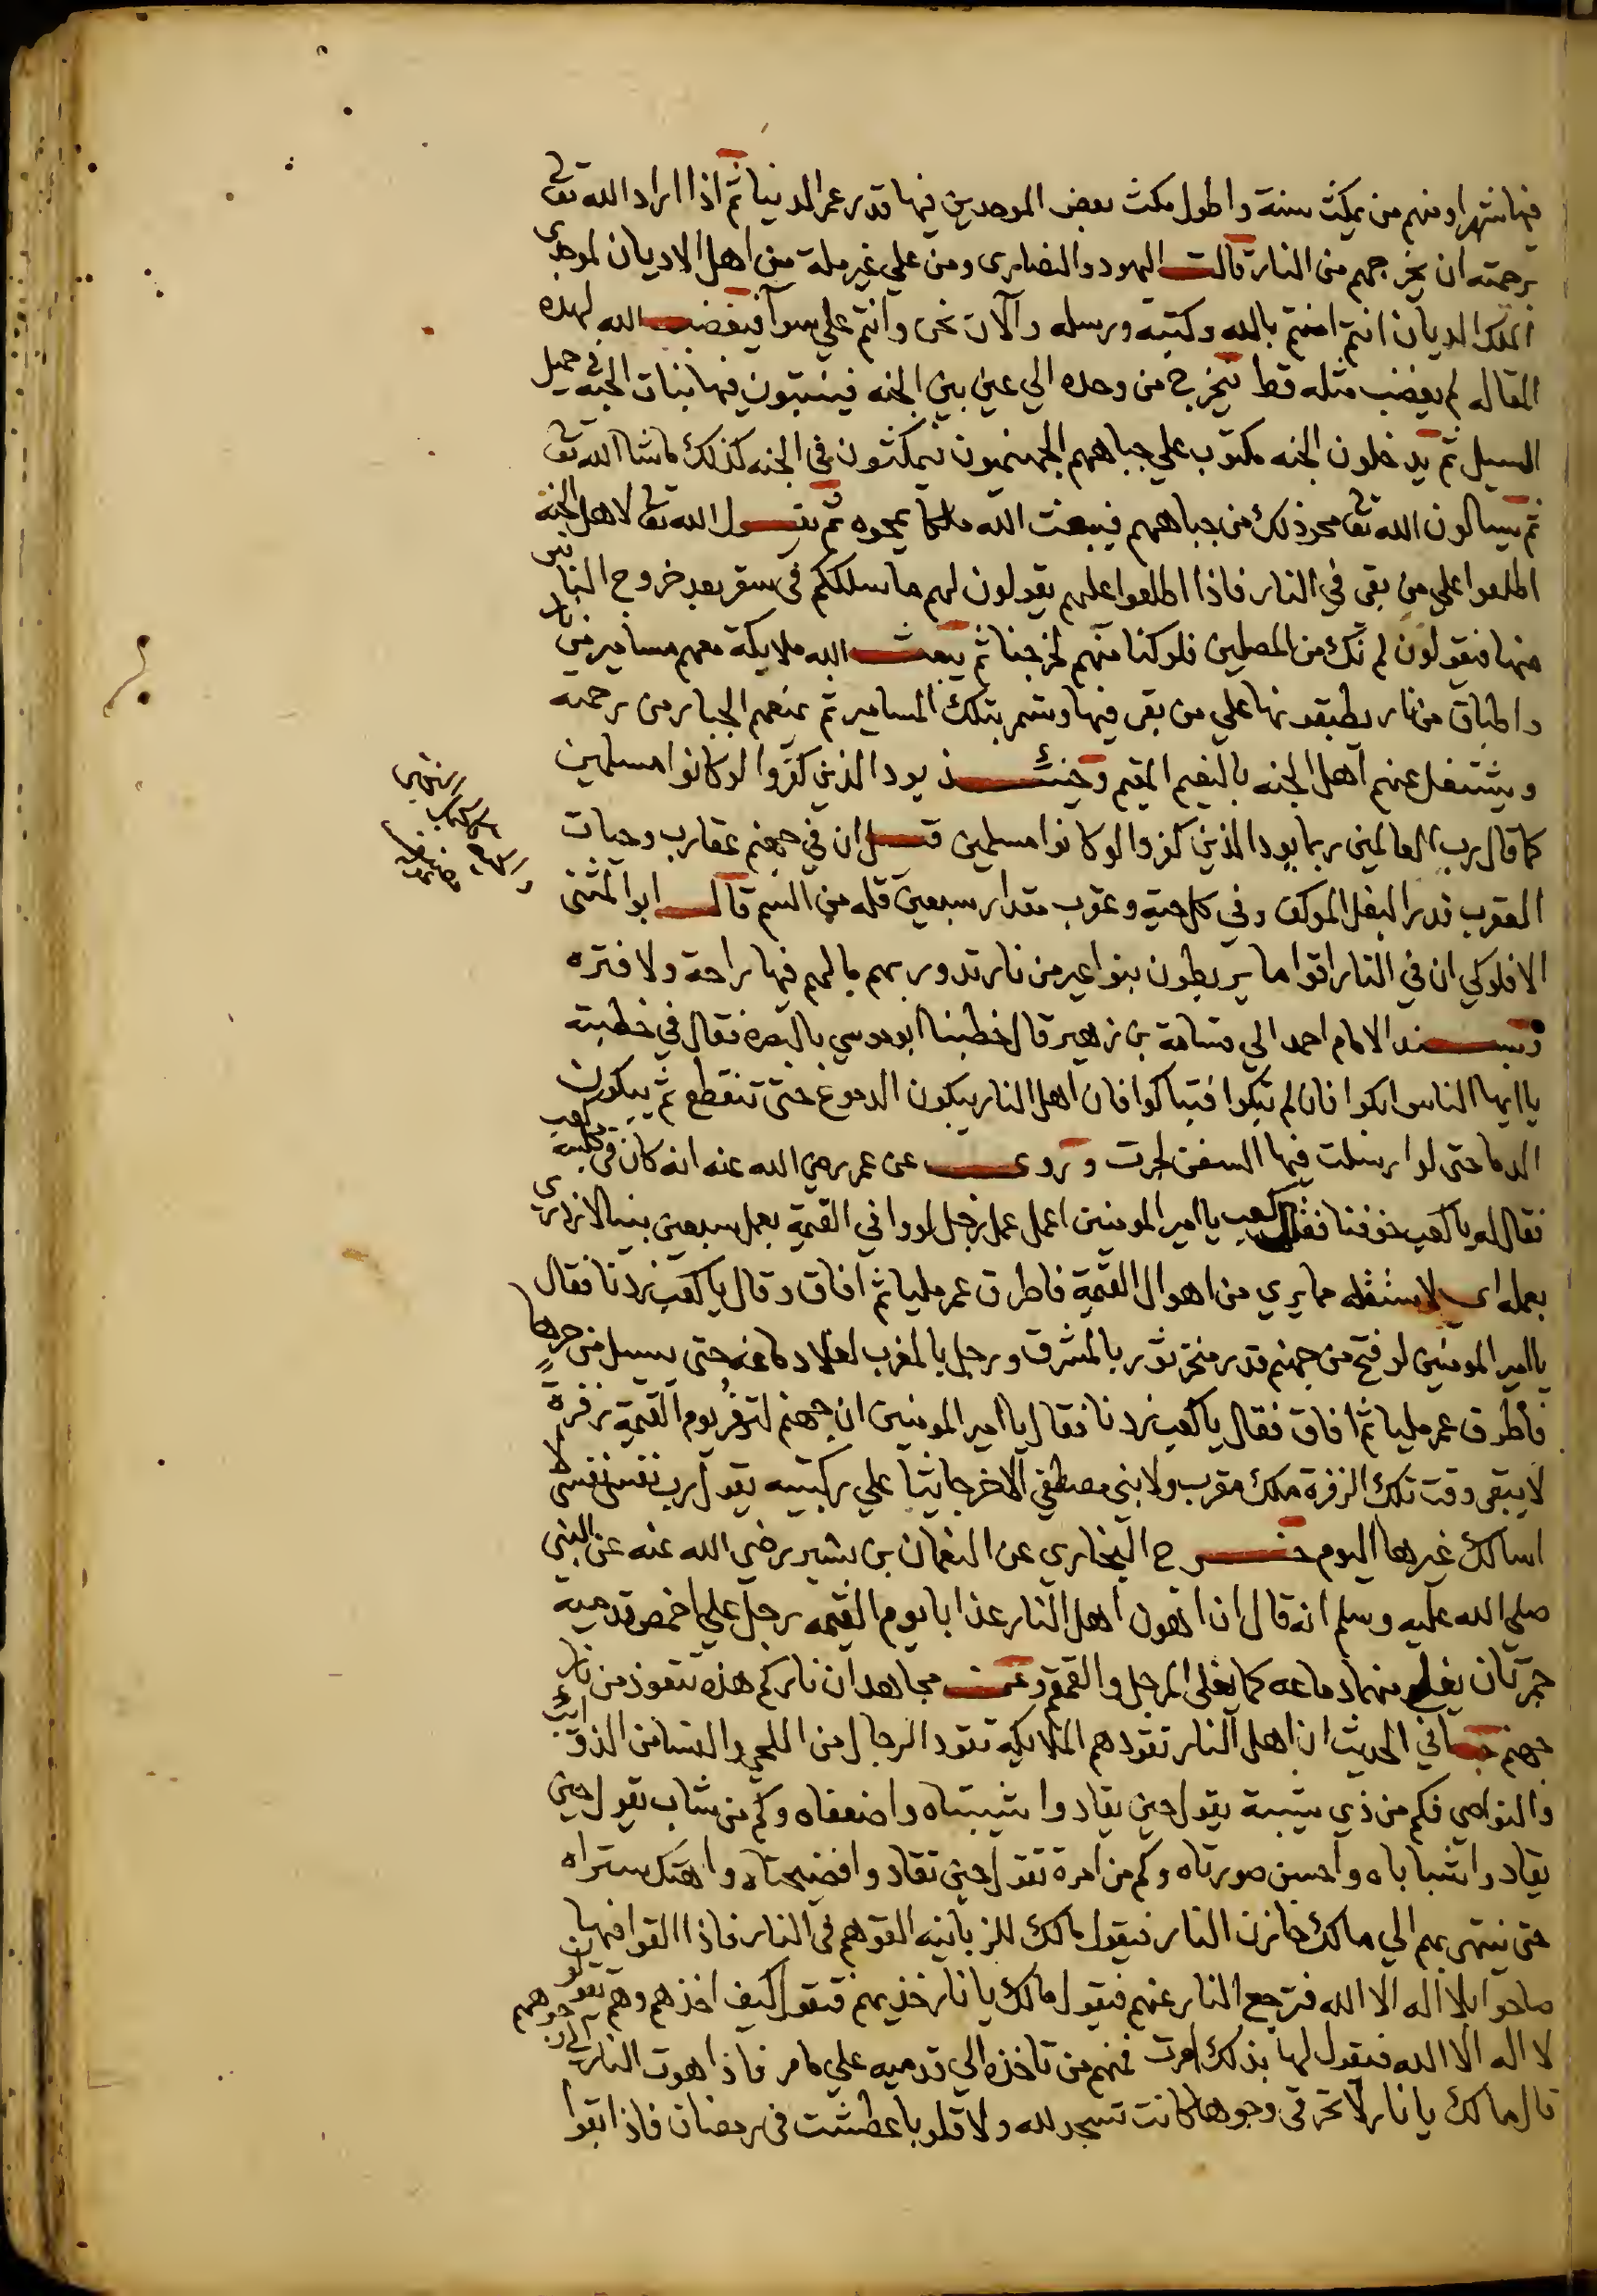 فيها شهرا ومنهم من يمكث سنة واطول مكث بعض الموحدين فيها قدر عمر الدنيا ثم اذا اراد الله تعالى
برحمته ان يخرجهم من النار قالت اليهود والنصارى ومن علي غير ملة من اهل الاديان لموحدي
الملك الديان انتم امنتم بالله وكتبه ورسله والآن نحن وانتم علي سوآ فيغضب الله لهذه
المقاله لم يغضب مثله قط فيخرج من وحده الي عين بين الجنه فينبتون فيها نبات الحبة في حميل
السيل ثم يدخلون الجنه مكتوب علي جباههم الجهنميون فيمكثون في الجنه كذلك ما شا الله تعالى
ثم يسالون الله تعالى محو ذلك من جباههم فيبعث الله ملكا يمحوه ثم يقول الله تعالى لاهل الجنة
اطلعوا علي من بقي في النار فاذا اطلعوا عليهم يقولون لهم ما سلككم في سقر بعد خروج الناس
منها فيقولون لم نك من المصلين فلو كنا منهم لخرجنا ثم يبعث الله ملايكة معهم مسامير من نار
واطباق من نار يطبقونها علي من بقي فيها وتسمر بتلك المسامير ثم يمنعهم الجبار من رحمته
ويشتغل عنهم اهل الجنه بالنعيم المقيم وحينئذ يود الذين كفروا لو كانوا مسلمين
كما قال رب العالمين ربما يود الذين كفروا لو كانوا مسلمين قيل ان في جهنم عقارب وحيات
العقرب قدر البغل الموكف وفي كل حية وعقرب مقدار سبعين قله من السم قال ابو المثنى
الاملوكي ان في النار اقواما يربطون بنواعير من نار تدور بهم ما لهم فيها راحة ولا فتره
وبسند الامام احمد الي قسامة بن زهير قال خطبنا ابو موسي بالبصره فقال في خطبته
يا ايها الناس ابكوا فان لم تبكوا فتباكوا فان اهل النار يبكون الدموع حتى تنقطع ثم يبكون
الدما حتى لو ارسلت فيها السفن لجرت وروي عن عمر رضي الله عنه انه كان في مجلسه كعب
فقال له يا كعب خوفنا فقال كعب يا امير المومنين اعمل عمل رجل لو وافي القيمة بعمل سبعين نبيا لازدري
بعمله اي لاستقله مما يري من اهوال القيمة فاطرق عمر مليا ثم افاق وقال يا كعب زدنا فقال
يا امير المومنين لو فتح من جهنم قدر منخر ثور بالمشرق ورجل بالمغرب لغلا دماغه حتى يسيل من حرها
فاطرق عمر مليا ثم افاق فقال يا كعب زدنا فقال يا امير المومنين ان جهنم لتزفر يوم القيمة زفرة
لا يبقي وقت تلك الزفرة ملك مقرب ولا نبي مصطفي الا خر جاثيا علي ركبتيه يقول رب نفسي نفسي لا
اسالك غيرها اليوم خرج البخاري عن النعمان بن بشير رضي الله عنه عن النبي
صلي الله عليه وسلم انه قال ان اهون اهل النار عذابا يوم القيمه رجل علي اخمص قدميه
جمرتان يغلي منهما دماغه كما يغلي المرجل والقمقم وعن مجاهد ان ناركم هذه تتعوذ من نار
جهنم جا في الحديث ان اهل النار تقودهم الملايكه تقود الرجال من اللحي والنسا من الذوايب
والنواصي فكم من ذي شيبة يقول حين يقاد وا شيبتاه واضعفاه وكم من شاب يقول حين
يقاد واشباباه واحسن صورتاه وكم من امرة تقول حين تقاد وافضيحتاه واهتك ستراه
حتى ينتهي بهم الي مالك خازن النار فيقول مالك للزبانيه القوهم في النار فاذا القوا فيها
صاحوا بلا اله الا الله فترجع النار عنهم فيقول مالك يا نار خذيهم فتقول كيف اخذهم وهم يقولون
لا اله الا الله فيقول لها بذلك امرت فمنهم من تاخذه الي قدميه علي ما مر فاذا هوت النار الي وجوههم
قال مالك يا نار لا تحرقي وجوها كانت تسجد لله ولا قلوبا عطشت في رمضان فاذا بقوا